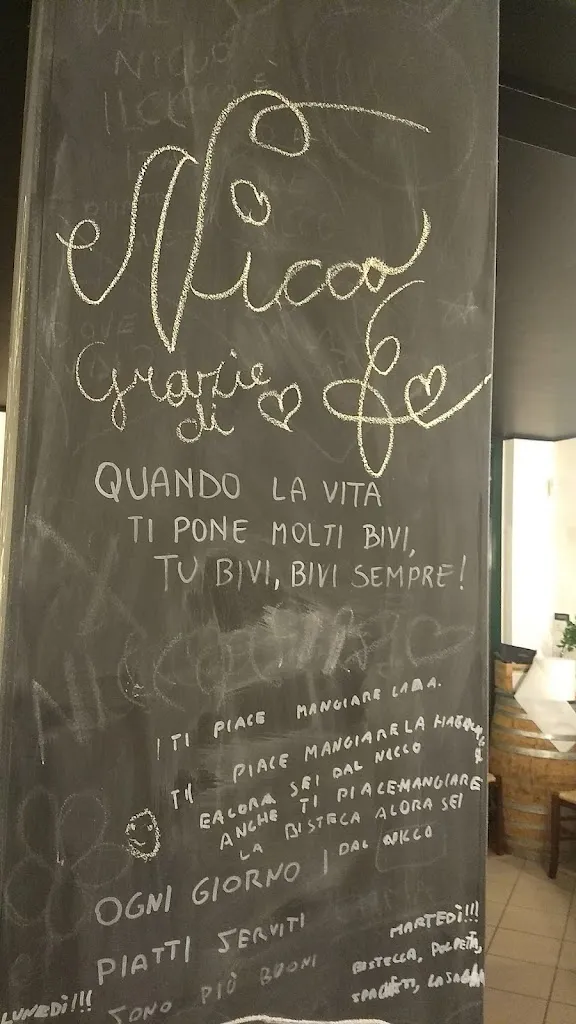 Nicco
Grazie
di
QUANDO LA VITA
TI PONE MOLTI BIVI,
TU BIVI, BIVI SEMPRE!
TI PIACE MANGIARE LA
TI PIACE MANGIARE LA
EALORA SEI DAL NICCO
ANCHE TI PIACE MANGIARE
LA BISTECA ALORA SEI
DAL NICCO
OGNI GIORNO I
PIATTI SERVITI
SONO PIÙ BUONI
LUNEDÌ!!!
MARTEDÌ!!!
BISTECCA, POLPETA,
SPAGHETI, LASAGNA